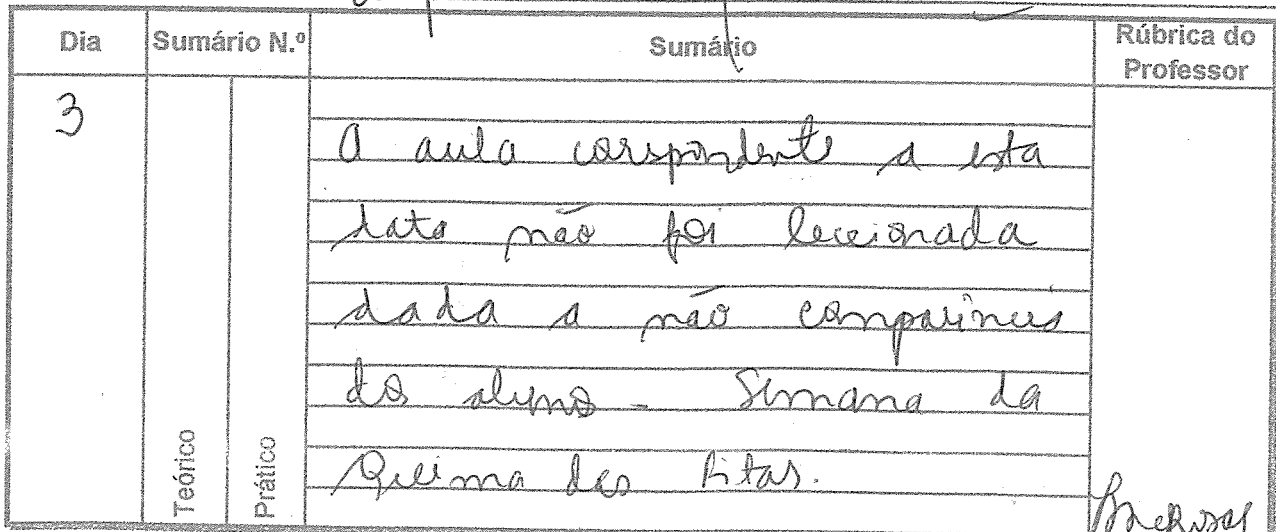 Dia Sumário N.º Sumário Rúbrica do
Professor
3
A aula correspondente a esta
data não foi leccionada
dada a não comparência
dos alunos - Semana da
Queima das Fitas.
Teórico
Prático